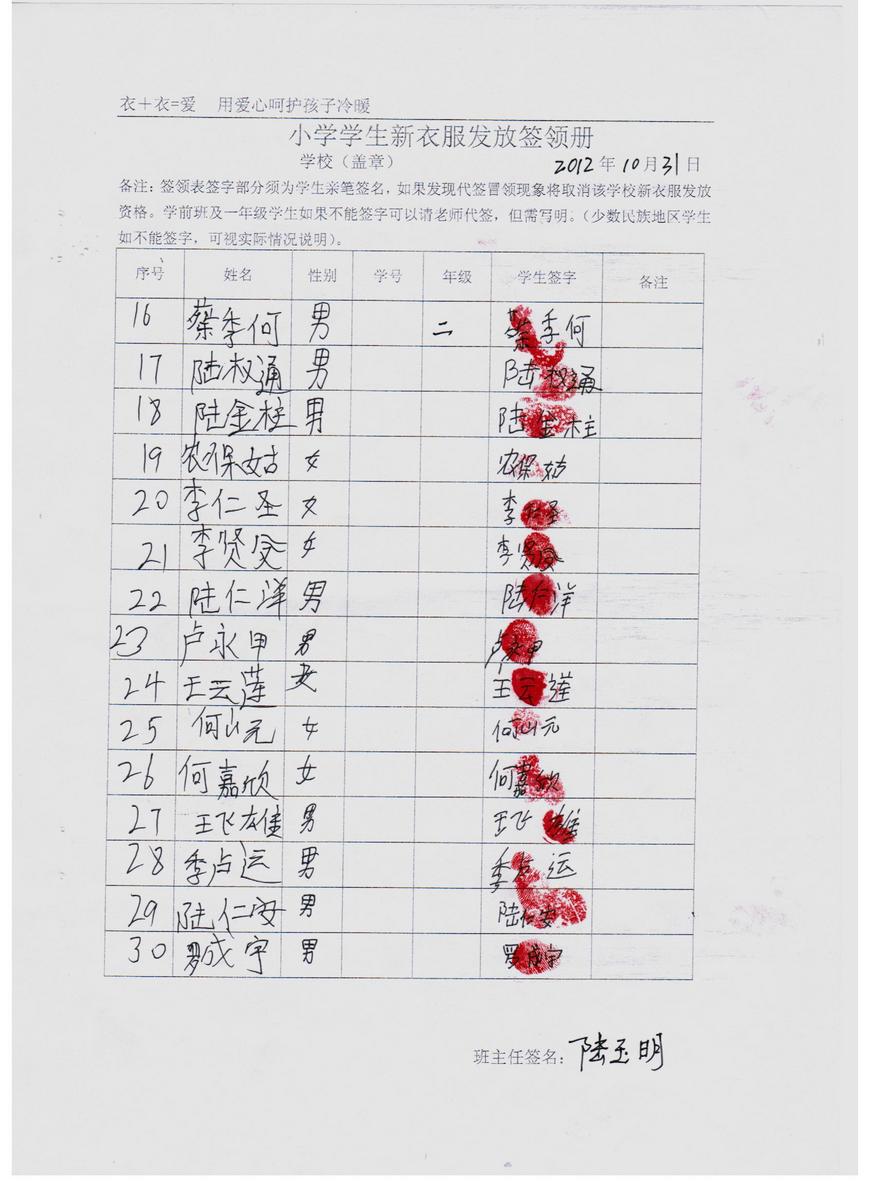 衣＋衣=爱 用爱心呵护孩子冷暖
小学学生新衣服发放签领册
学校（盖章） 2012年10月31日
备注：签领表签字部分须为学生亲笔签名，如果发现代签冒领现象将取消该学校新衣服发放
资格。学前班及一年级学生如果不能签字可以请老师代签，但需写明。（少数民族地区学生
如不能签字，可视实际情况说明）。
序号 姓名 性别 学号 年级 学生签字 备注
16 蔡季何 男 二 蔡季何
17 陆权通 男 陆权通
18 陆金柱 男 陆金柱
19 农保姑 女 农保姑
20 李仁圣 女 李仁圣
21 李贤 女 李贤
22 陆仁洋 男 陆仁洋
23 卢永甲 男 卢永甲
24 王云莲 女 王云莲
25 何山元 女 何山元
26 何嘉欣 女 何嘉欣
27 王飞雄 男 王飞雄
28 季卢运 男 季卢运
29 陆仁安 男 陆仁安
30 罗成宇 男 罗成宇
班主任签名：陆玉明